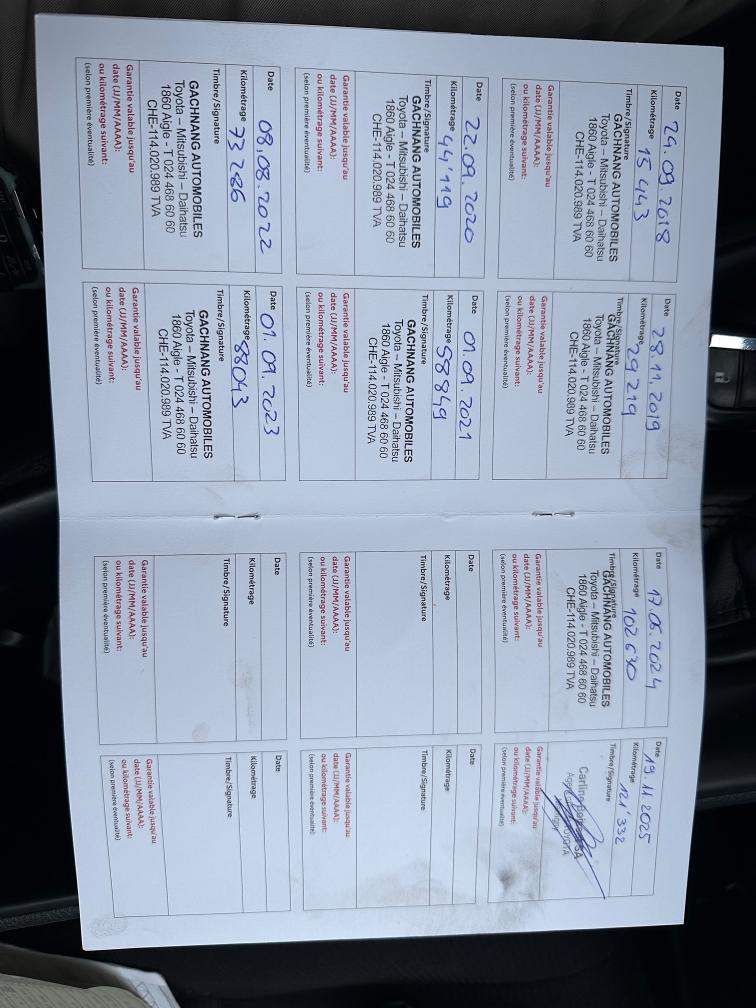 Date 24.09.2018
Kilométrage 15 443
Timbre/Signature
GACHNANG AUTOMOBILES
Toyota – Mitsubishi – Daihatsu
1860 Aigle - T 024 468 60 60
CHE-114.020.989 TVA
Garantie valable jusqu'au
date (JJ/MM/AAAA):
ou kilométrage suivant:
(selon première éventualité)
Date 28.11.2019
Kilométrage 29 219
Timbre/Signature
GACHNANG AUTOMOBILES
Toyota – Mitsubishi – Daihatsu
1860 Aigle - T 024 468 60 60
CHE-114.020.989 TVA
Garantie valable jusqu'au
date (JJ/MM/AAAA):
ou kilométrage suivant:
(selon première éventualité)
Date 22.09.2020
Kilométrage 44'119
Timbre/Signature
GACHNANG AUTOMOBILES
Toyota – Mitsubishi – Daihatsu
1860 Aigle - T 024 468 60 60
CHE-114.020.989 TVA
Garantie valable jusqu'au
date (JJ/MM/AAAA):
ou kilométrage suivant:
(selon première éventualité)
Date 01.09.2021
Kilométrage 58849
Timbre/Signature
GACHNANG AUTOMOBILES
Toyota – Mitsubishi – Daihatsu
1860 Aigle - T 024 468 60 60
CHE-114.020.989 TVA
Garantie valable jusqu'au
date (JJ/MM/AAAA):
ou kilométrage suivant:
(selon première éventualité)
Date 08.08.2022
Kilométrage 73 286
Timbre/Signature
GACHNANG AUTOMOBILES
Toyota – Mitsubishi – Daihatsu
1860 Aigle - T 024 468 60 60
CHE-114.020.989 TVA
Garantie valable jusqu'au
date (JJ/MM/AAAA):
ou kilométrage suivant:
(selon première éventualité)
Date 01.09.2023
Kilométrage 88043
Timbre/Signature
GACHNANG AUTOMOBILES
Toyota – Mitsubishi – Daihatsu
1860 Aigle - T 024 468 60 60
CHE-114.020.989 TVA
Garantie valable jusqu'au
date (JJ/MM/AAAA):
ou kilométrage suivant:
(selon première éventualité)
Date 17.05.2024
Kilométrage 102 630
Timbre/Signature
GACHNANG AUTOMOBILES
Toyota – Mitsubishi – Daihatsu
1860 Aigle - T 024 468 60 60
CHE-114.020.989 TVA
Garantie valable jusqu'au
date (JJ/MM/AAAA):
ou kilométrage suivant:
(selon première éventualité)
Date 19.11.2025
Kilométrage 121 332
Timbre/Signature
SA
TOYOTA
Garantie valable jusqu'au
date (JJ/MM/AAAA):
ou kilométrage suivant:
(selon première éventualité)
Date
Kilométrage
Timbre/Signature
Garantie valable jusqu'au
date (JJ/MM/AAAA):
ou kilométrage suivant:
(selon première éventualité)
Date
Kilométrage
Timbre/Signature
Garantie valable jusqu'au
date (JJ/MM/AAAA):
ou kilométrage suivant:
(selon première éventualité)
Date
Kilométrage
Timbre/Signature
Garantie valable jusqu'au
date (JJ/MM/AAAA):
ou kilométrage suivant:
(selon première éventualité)
Date
Kilométrage
Timbre/Signature
Garantie valable jusqu'au
date (JJ/MM/AAAA):
ou kilométrage suivant:
(selon première éventualité)